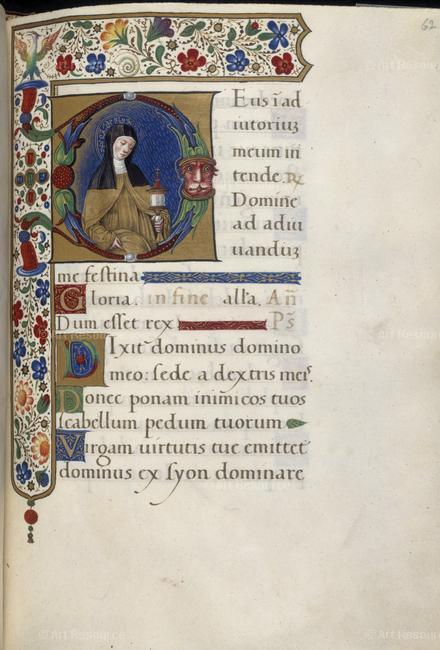 62
Eus ī ad
iutoriuʒ
meum in
tende. ℞
Domine
ad adiu
uanduʒ
me festina
Gloria. in fine all'a. An̄
Dum esset rex Ps̄
DIxit dominus domino
meo: sede a dextris meis.
Donec ponam inimicos tuos
scabellum pedum tuorum
Virgam virtutis tue emittet
dominus ex syon dominare
© Art Resource